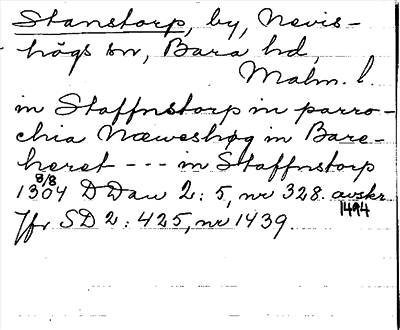 Stanstorp, by, Nevis-
högs sn, Bara hd,
Malm. l.
in Staffnstorp in parro-
chia Næweshøg in Bare-
heret --- in Staffnstorp
8/8
1304 DDan 2:5, nr 328. avskr.
1494
Jfr SD 2:425, nr 1439.